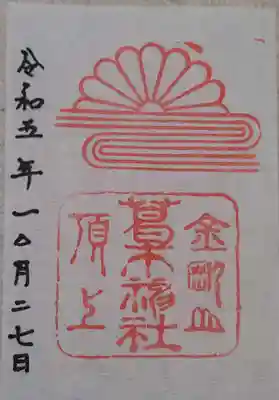 金剛山
葛木神社
頂上
令和五年一〇月二七日